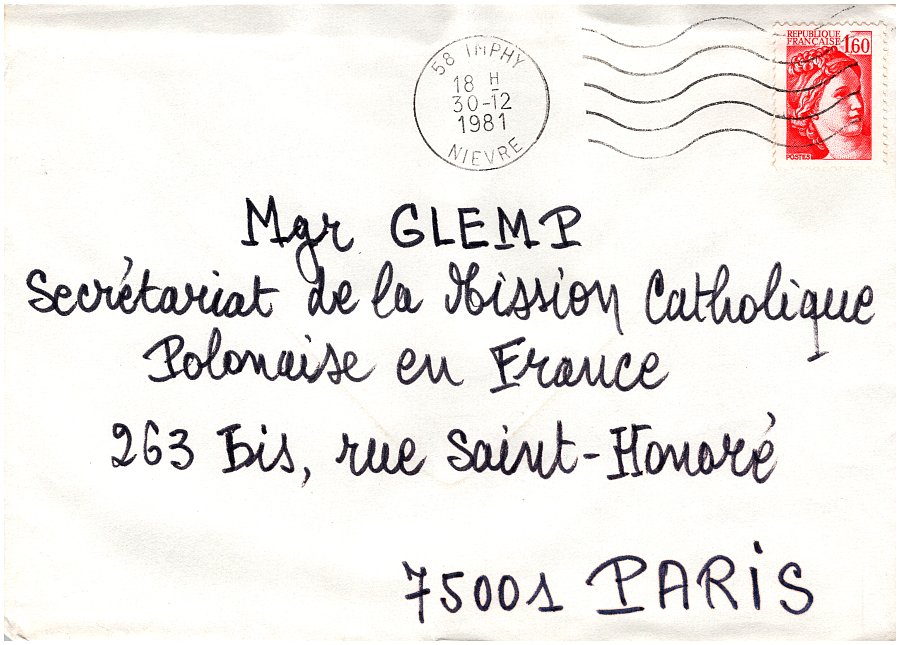 58 IMPHY
18 H
30-12
1981
NIEVRE
REPUBLIQUE
FRANÇAISE 1,60
POSTES
Mgr GLEMP
Secrétariat de la Mission Catholique
Polonaise en France
263 Bis, rue Saint-Honoré
75001 PARIS